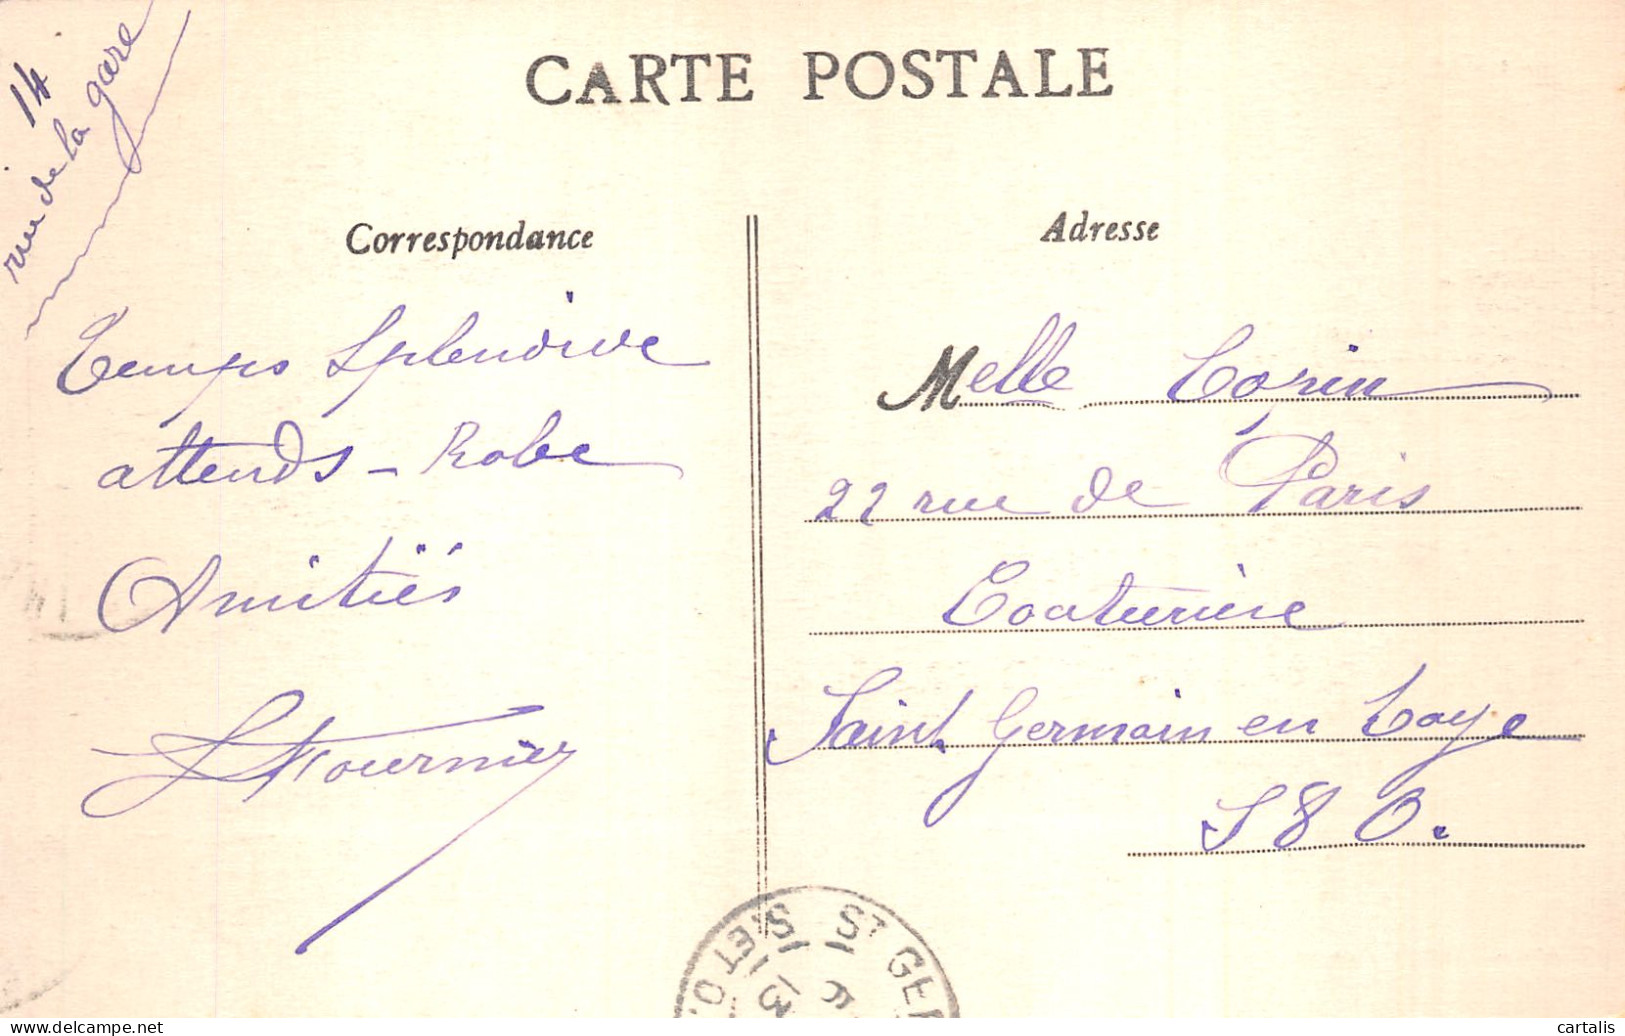 14
rue de la gare
CARTE POSTALE
Correspondance
Adresse
Temps Splendide
attends - Robe
Amitiés
Fournier
Melle
22 rue de Paris
Couturière
Saint Germain en Laye
S & O.
ST GER
S. ET O.
13
www.delcampe.net
cartalis